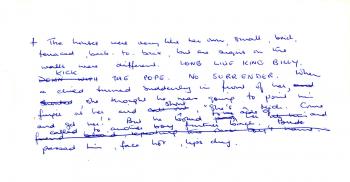 + The houses were very like her own, small, brick,
terraced, back-to-back, but the signs on the
walls were different. LONG LIVE KING BILLY.
KICK
DOWN WITH THE POPE. NO SURRENDER. When
a child turned suddenly in front of her, and
she thought he was going to point his
finger at her and shout "She's a Come
and get her!" But he
called to another boy further back,
passed him, face hot, lips dry.